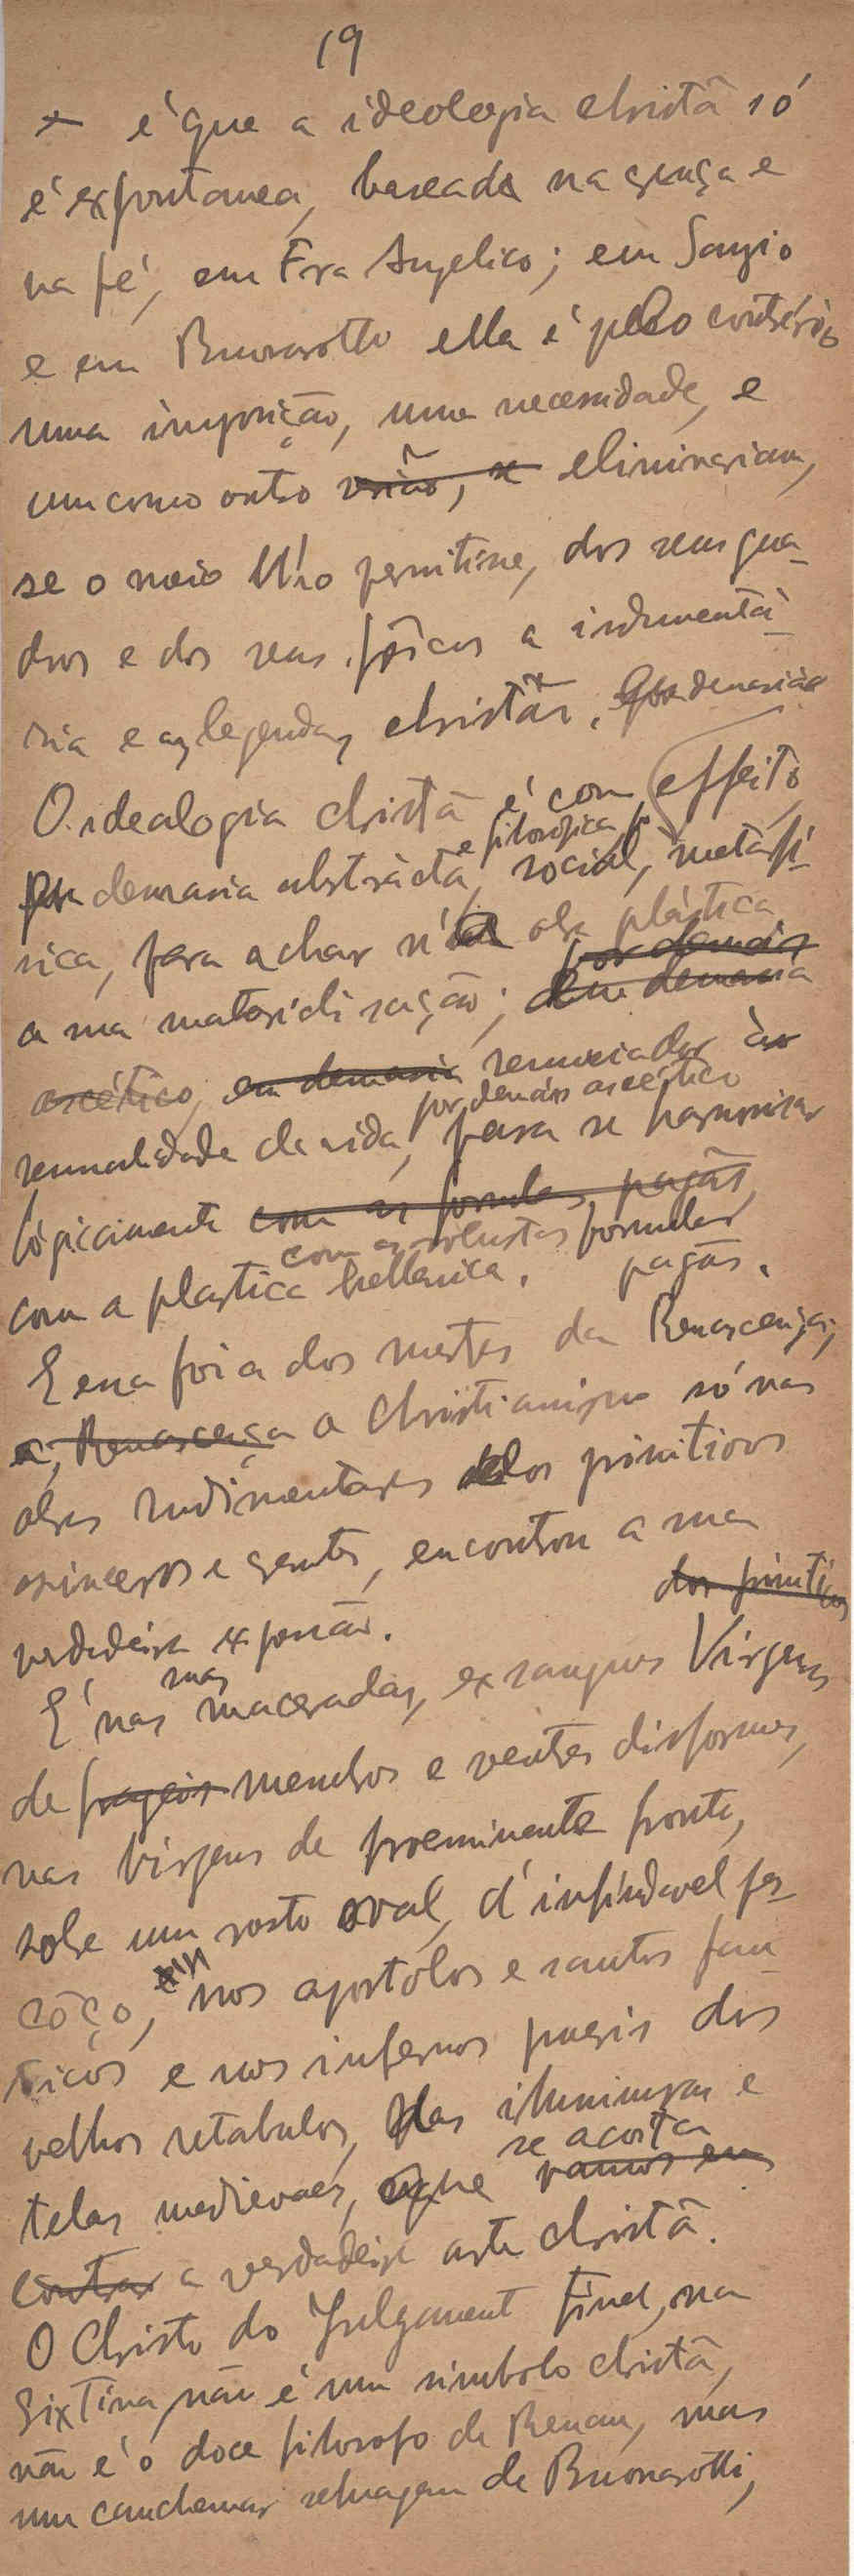 19
é que a ideologia christã só
é expontanea, baseada na crença e
na fé, em Fra Angelico; em Sanzio
e em Buonarotti ella é pelo contrário
uma imposição, uma necessidade, e
um como outro visão, se eliminariam,
se o meio lh'o permitisse, dos seus qua-
dros e dos seus frescos a indumentá-
ria e as legendas christãs. demasia
O idealogia christã é com effeito,
e filosofica,
por demasia abstracta, social, metafi-
sica, para achar n'uma obra plástica
por demais
a sua materialisação; em demasia
ascético, em demasia renunciador às
por demais ascético
sensualidade da vida, para se harmonisar
lógicamente com as formulas pagãs
com as robustas formulas
com a plastica hellenica. pagãs.
E essa foi a dos mestres da Renascença;
a, Renascença o Christianismo só nas
obras rudimentares dos primitivos
sinceros e crentes, encontrou a sua
dos primitivos
verdadeira expressão.
suas
É nas maceradas, exsangues Virgens
de frageis membros e ventres disformes,
nas Virgens de proeminente fronte,
sobre um rosto oval, d'infindavel pes-
côço, nos apostolos e santos faná-
ticos e nos infernos pueris dos
velhos retabulos, das iluminuras e
se acosta
telas medievaes, que vamos en
contrar a verdadeira arte christã.
O Christo do Julgament Final, na
Sixtina, não é um simbolo christã,
não é o doce filosofo de Renan, mas
um cauchemar selvagem de Buonarotti,